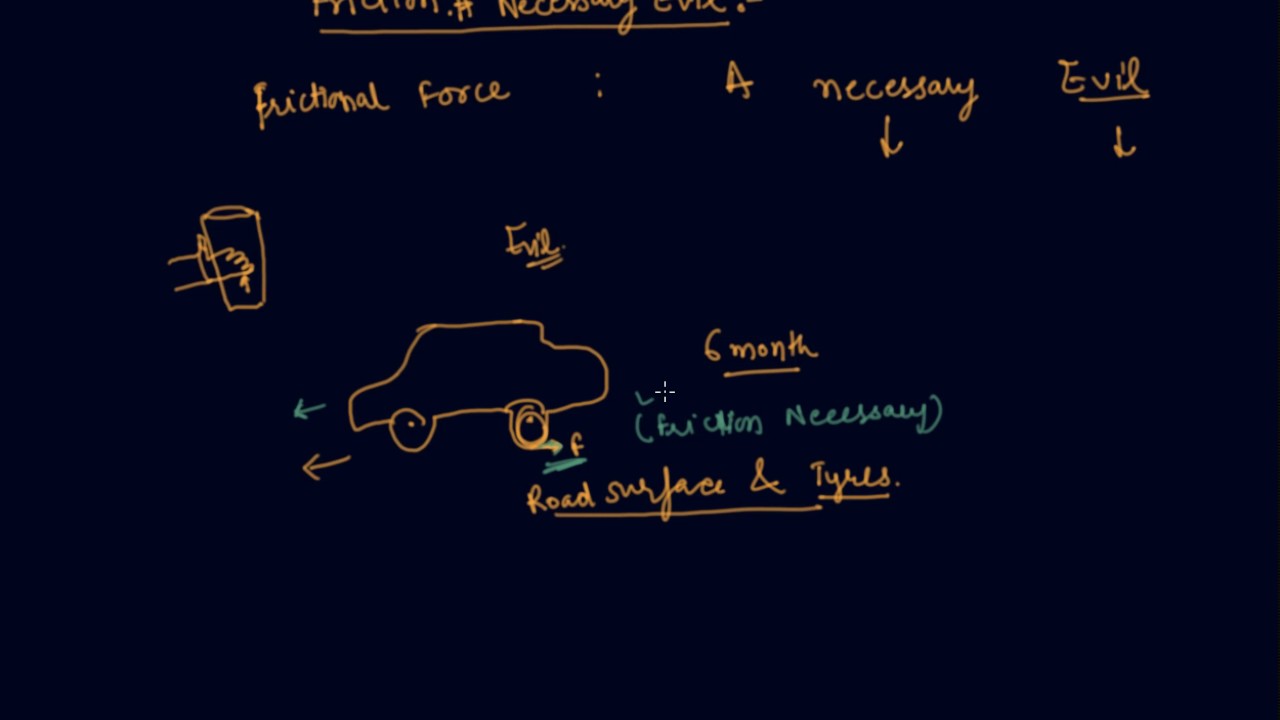 Friction: A Necessary Evil:-
Frictional Force : A necessary Evil
Evil.
6 month
(Friction Necessary)
f
Road surface & Tyres.